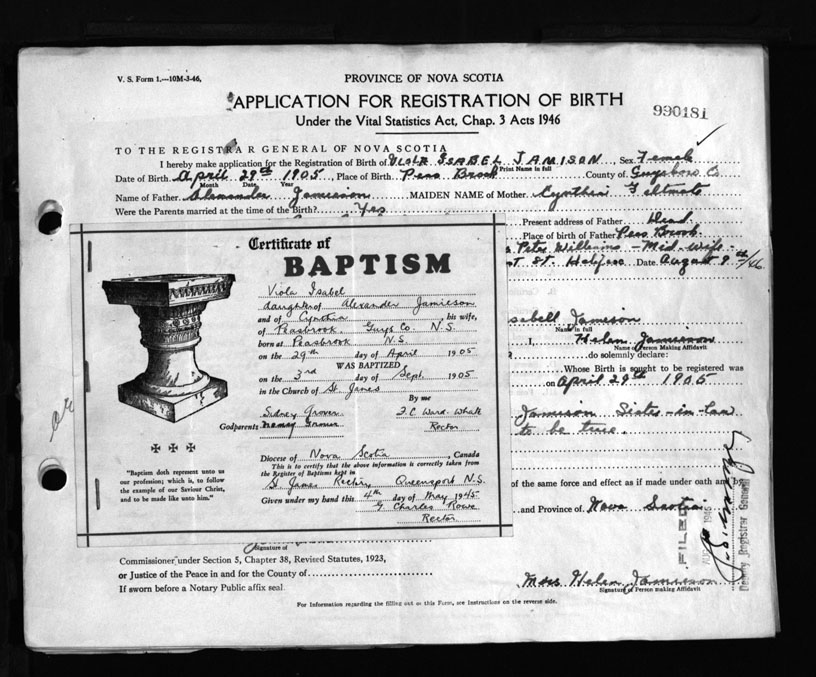 V. S. Form 1.—10M-3-46,
PROVINCE OF NOVA SCOTIA
APPLICATION FOR REGISTRATION OF BIRTH
990181
Under the Vital Statistics Act, Chap. 3 Acts 1946
TO THE REGISTRAR GENERAL OF NOVA SCOTIA
I hereby make application for the Registration of Birth of Viola ISABEL JAMISON, Sex Female
Print Name in full
Date of Birth April 29th 1905, Place of Birth Peas Brook County of Guysboro Co
Month Date Year
Name of Father Alexander Jamieson MAIDEN NAME of Mother Cynthia Feltmate
Were the Parents married at the time of the Birth? Yes
Present address of Father Dead
Place of birth of Father Peas Brook
Peter Williams - Mid-wife -
St. Halifax Date August 9th/46
Certificate of
BAPTISM
Viola Isabel
daughter of Alexander Jamieson
and of Cynthia, his wife,
of Peasbrook, Guys Co. N.S.
born at Peasbrook N.S.
on the 29th day of April 1905
WAS BAPTIZED
on the 3rd day of Sept. 1905
in the Church of St. James
By me
Sidney Grover
Godparents
Rector
Diocese of Nova Scotia, Canada
This is to certify that the above information is correctly taken from
the Register of Baptisms kept in
St James Rectory Queensport N.S.
Given under my hand this 4th day of May 1945
G Charles Rowe
Rector
"Baptism doth represent unto us
our profession; which is, to follow
the example of our Saviour Christ,
and to be made like unto him."
Jameson
Name in full
I, Helen Jamieson
Name of Person Making Affidavit
do solemnly declare:
Whose Birth is sought to be registered was
on April 29th 1905
Jamieson Sister-in-law
to be true.
of the same force and effect as if made under oath and by
and Province of Nova Scotia
FILED
1946
Deputy Registrar General
Signature of
Commissioner under Section 5, Chapter 38, Revised Statutes, 1923,
or Justice of the Peace in and for the County of
If sworn before a Notary Public affix seal.
Miss Helen Jamieson
Signature of Person making Affidavit
For Information regarding the filling out of this Form, see Instructions on the reverse side.